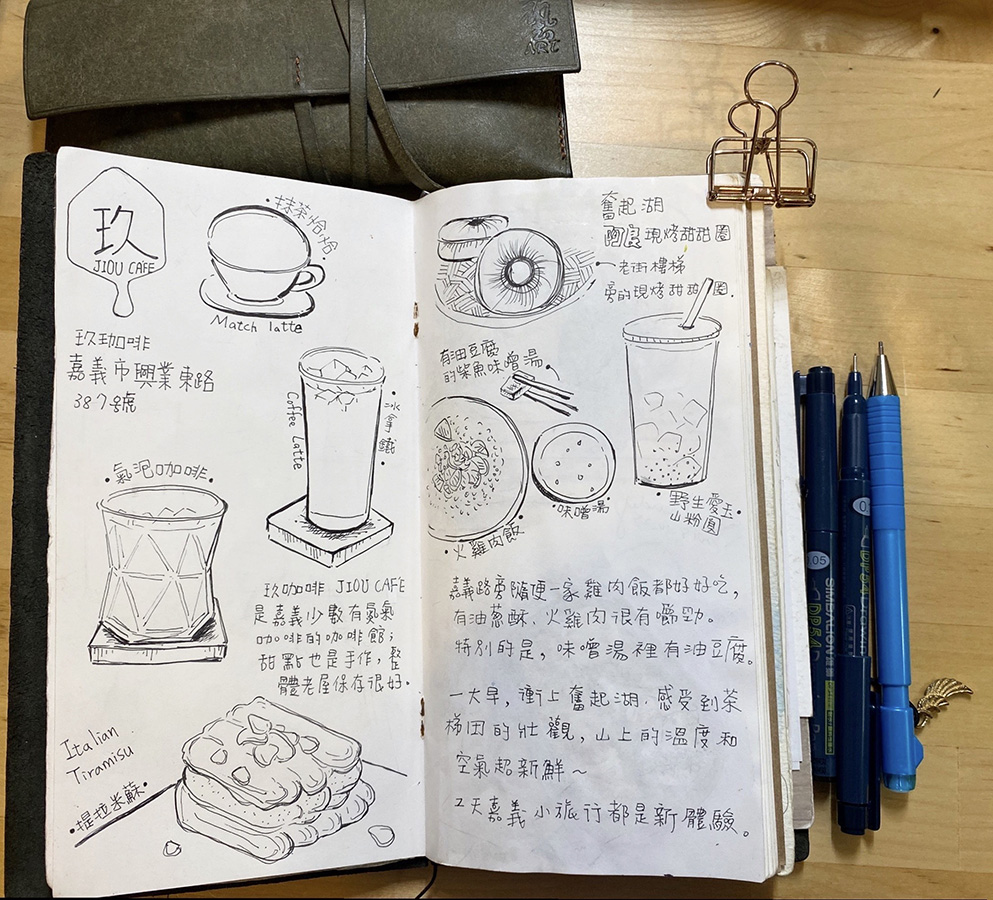 玖
JIOU CAFE
抹茶恰恰
Match latte
玖珈咖啡
嘉義市興業東路
387号號
冰拿鐵
Coffee Latte
氣泡咖啡
玖咖啡 JIOU CAFE
是嘉義少數有氮氣
咖啡的咖啡館；
甜點也是手作，整
體老屋保存很好。
Italian
Tiramisu
提拉米蘇
奮起湖
現烤甜甜圈
老街樓梯
旁的現烤甜甜圈.
有油豆腐
的柴魚味噌湯
味噌湯
火雞肉飯
野生愛玉
山粉圓
嘉義路旁隨便一家雞肉飯都好好吃，
有油蔥酥、火雞肉很有嚼勁。
特別的是，味噌湯裡有油豆腐。
一大早，衝上奮起湖，感受到茶
梯田的壯觀，山上的溫度和
空氣超新鮮～
2天嘉義小旅行都是新體驗。
SIMBALION
05
DP54